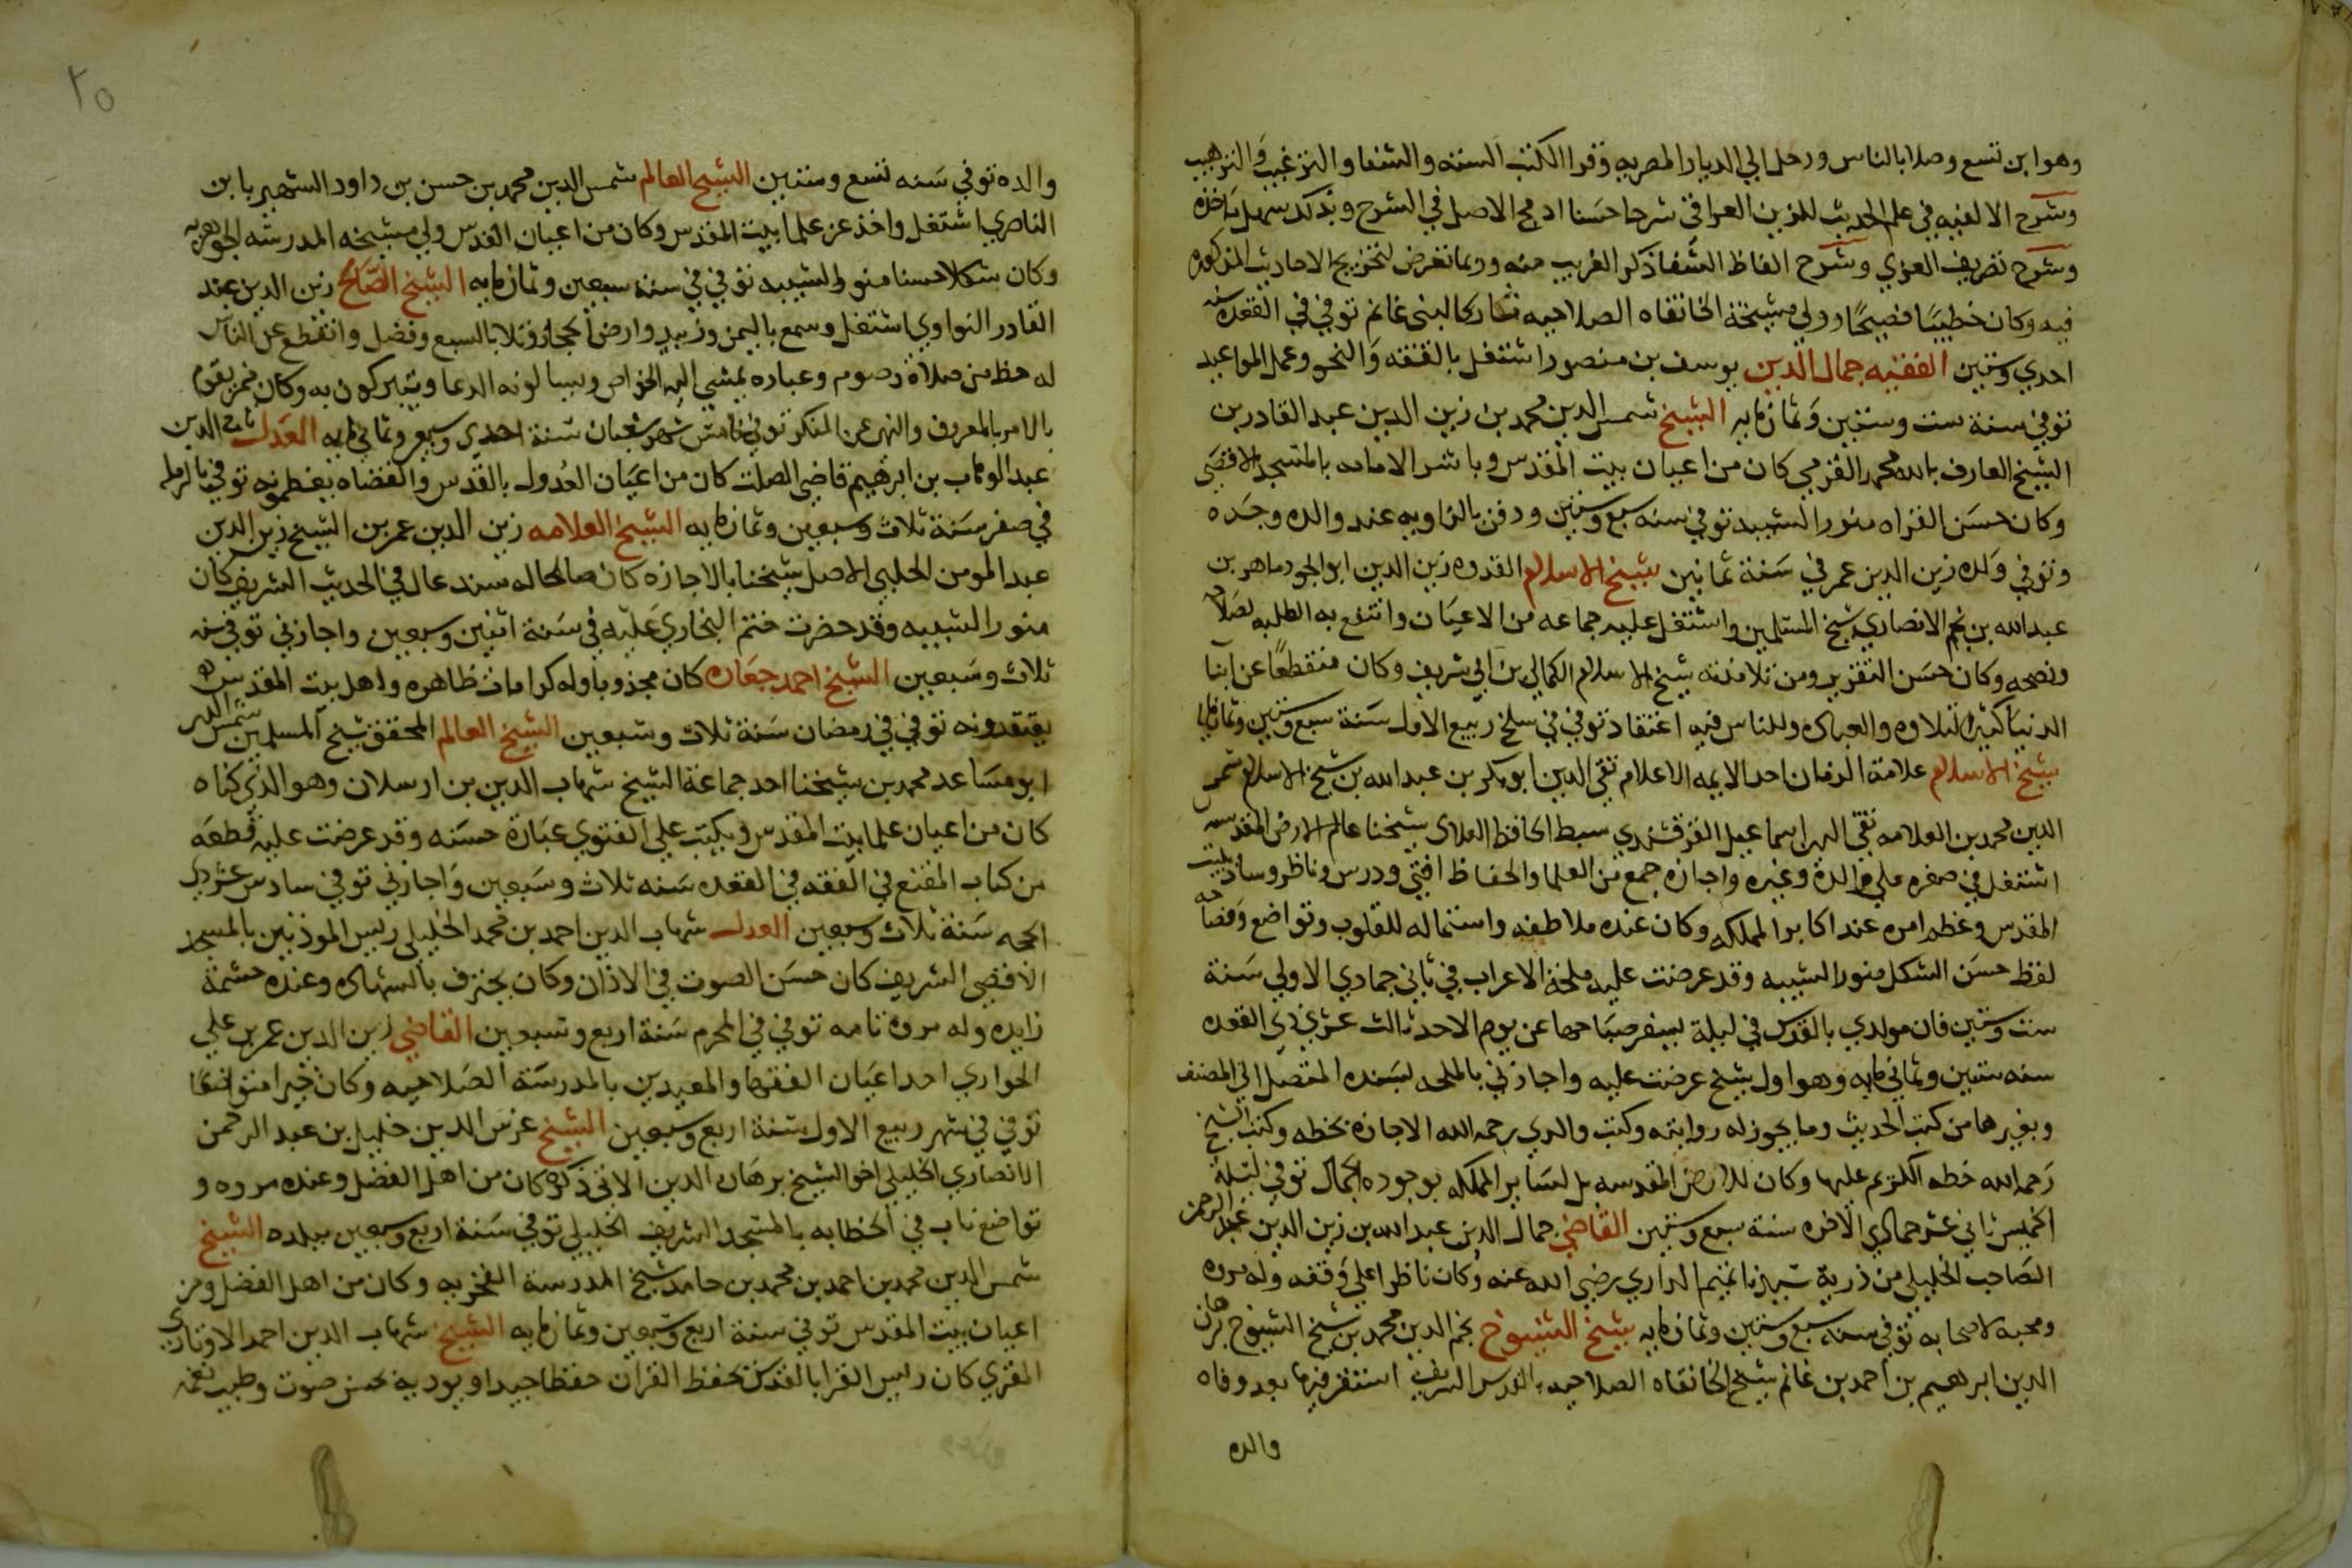 وهو ابن تسع وصلا بالناس ورحل الي الديار المصريه وقرا الكتب السته والشفا والترغيب والترهيب
وشرح الالفيه في علم الحديث للزين العراقي شرحا حسنا ادمج الاصل في الشرح وبذلك سهل ماخذه
وشرح تصريف العزي وشرح الفاظ الشفا ذكر الغريب منه وربما تعرض لتخريج الاحاديث المذكوره
فيه وكان خطيبا فصيحا وولي مشيخة الخانقاه الصلاحيه مشاركا لبني غانم توفي في القعده سنه
احدي وستين الفقيه جمال الدين يوسف بن منصور اشتغل بالفقه والنحو وعمل المواعيد
توفي سنة ست وستين وثمانمايه الشيخ شمس الدين محمد بن زين الدين عبد القادر بن
الشيخ العارف بالله محمد القرمي كان من اعيان بيت المقدس وباشر الامامه بالمسجد الاقصي
وكان حسن القراه منور الشيبه توفي سنه سبع وستين ودفن بالزاويه عند والده وجده
وتوفي ولده زين الدين عمر في سنة ثمانين شيخ الاسلام القدوه زين الدين ابو الجود ماهر بن
عبد الله بن نجم الانصاري شيخ المسلمين واشتغل عليه جماعه من الاعيان وانتفع به الطلبه لصلاحه
ونصحه وكان حسن التقرير ومن تلامذته شيخ الاسلام الكمالي بن ابي شريف وكان منقطعا عن ابنا
الدنيا كثير التلاوه والعباده وللناس فيه اعتقاد توفي في سلخ ربيع الاول سنة سبع وستين وثمانمايه
شيخ الاسلام علامة الزمان احد الايمه الاعلام تقي الدين ابو بكر بن عبد الله بن شيخ الاسلام شمس
الدين محمد بن العلامه تقي الدين اسماعيل القرقشندي سبط الحافظ العلاي شيخنا عالم الارض المقدسه
اشتغل في صغره علي والده وغيره واجازه جمع من العلما والحفاظ افتي ودرس وناظر وساد ببيت
المقدس وعظم امره عند اكابر المملكه وكان عنده ملاطفه واستماله للقلوب وتواضع وفصاحه
لفظ حسن الشكل منور الشيبه وقد عرضت عليه ملحة الاعراب في ثاني جمادي الاولي سنة
ست وستين فان مولدي بالقدس في ليلة يسفر صباحها عن يوم الاحد ثالث عشري ذي القعده
سنه ستين وثماني مايه وهو اول شيخ عرضت عليه واجازني بالملحه بسنده المتصل الي المصنف
وبغيرها من كتب الحديث وما يجوز له روايته وكتب والدي رحمه الله الاجازه بخطه وكتب الشيخ
رحمه الله خطه الكريم عليها وكان للارض المقدسه بل لساير المملكه بوجوده الجمال توفي ليلة
الخميس ثاني عشر جمادي الاخره سنة سبع وستين القاضي جمال الدين عبد الله بن زين الدين عبد الرحمن
الصاحب الخليلي من ذرية سيدنا تميم الداري رضي الله عنه وكان ناظرا علي وقفه وله مروه
ومحبه لاصحابه توفي سنه سبع وستين وثمانمايه شيخ الشيوخ نجم الدين محمد بن شيخ الشيوخ برهان
الدين ابرهيم بن احمد بن غانم شيخ الخانقاه الصلاحيه بالقدس الشريف استقر فيها بعد وفاه
والده
٢٥
والده توفي سنه تسع وستين الشيخ العالم شمس الدين محمد بن حسن بن داود الشهير بابن
الناصري اشتغل واخذ عن علما بيت المقدس وكان من اعيان القدس ولي مشيخه المدرسه الجوهريه
وكان شكلا حسنا منور الشيبه توفي في سنه سبعين وثمانمايه الشيخ الصالح زين الدين عبد
القادر النواوي اشتغل وسمع باليمن وزبيد وارض الحجاز وتلا بالسبع وفضل وانقطع عن الناس
له حظ من صلاة وصوم وعباده يمشي اليه الخواص ويسالونه الدعا ويتبركون به وكان ممن يقوم
بالامر بالمعروف والنهي عن المنكر توفي خامس شهر شعبان سنة احدي وسبعين وثماني مايه العدل تاج الدين
عبد الوهاب بن ابرهيم قاضي الصلت كان من اعيان العدول بالقدس والقضاه يعظمونه توفي بالرمله
في صفر سنة ثلاث وسبعين وثمانمايه الشيخ العلامه زين الدين عمر بن الشيخ زين الدين
عبد المومن الحلبي الاصل شيخنا بالاجازه كان صالحا له سند عال في الحديث الشريف كان
منور الشيبه وقد حضرت ختم البخاري عليه في سنة اثنين وسبعين واجازني توفي سنه
ثلاث وسبعين الشيخ احمد جعاره كان مجذوبا وله كرامات ظاهره واهل بيت المقدس
يعتقدونه توفي في رمضان سنة ثلاث وسبعين الشيخ العالم المحقق شيخ المسلمين شمس الدين
ابو مساعد محمد بن شيخنا احد جماعة الشيخ شهاب الدين بن ارسلان وهو الذي كناه
كان من اعيان علما بيت المقدس ويكتب علي الفتوي عبارة حسنه وقد عرضت عليه قطعه
من كتاب المقنع في الفقه في القعده سنه ثلاث وسبعين واجازني توفي سادس عشر ذي
الحجه سنة ثلاث وسبعين العدل شهاب الدين احمد بن محمد الخليلي رييس الموذنين بالمسجد
الاقصي الشريف كان حسن الصوت في الاذان وكان يحترف بالشهاده وعنده حشمة
زايده وله مروة تامه توفي في المحرم سنة اربع وسبعين القاضي زين الدين عمر بن علي
الحواري احد اعيان الفقها والمعيدين بالمدرسة الصلاحيه وكان خيرا متواضعا
توفي في شهر ربيع الاول سنة اربع وسبعين الشيخ غرس الدين خليل بن عبد الرحمن
الانصاري الخليلي اخو الشيخ برهان الدين الاتي ذكره كان من اهل الفضل وعنده مروه و
تواضع ناب في الخطابه بالمسجد الشريف الخليلي توفي سنة اربع وسبعين ببلده الشيخ
شمس الدين محمد بن احمد بن محمد بن حامد شيخ المدرسة الفخريه وكان من اهل الفضل ومن
اعيان بيت المقدس توفي سنة اربع وسبعين وثمانمايه الشيخ شهاب الدين احمد
المقري كان رييس القرا بالقدس يحفظ القران حفظا جيدا ويوديه بحسن صوت وطيب نغمه